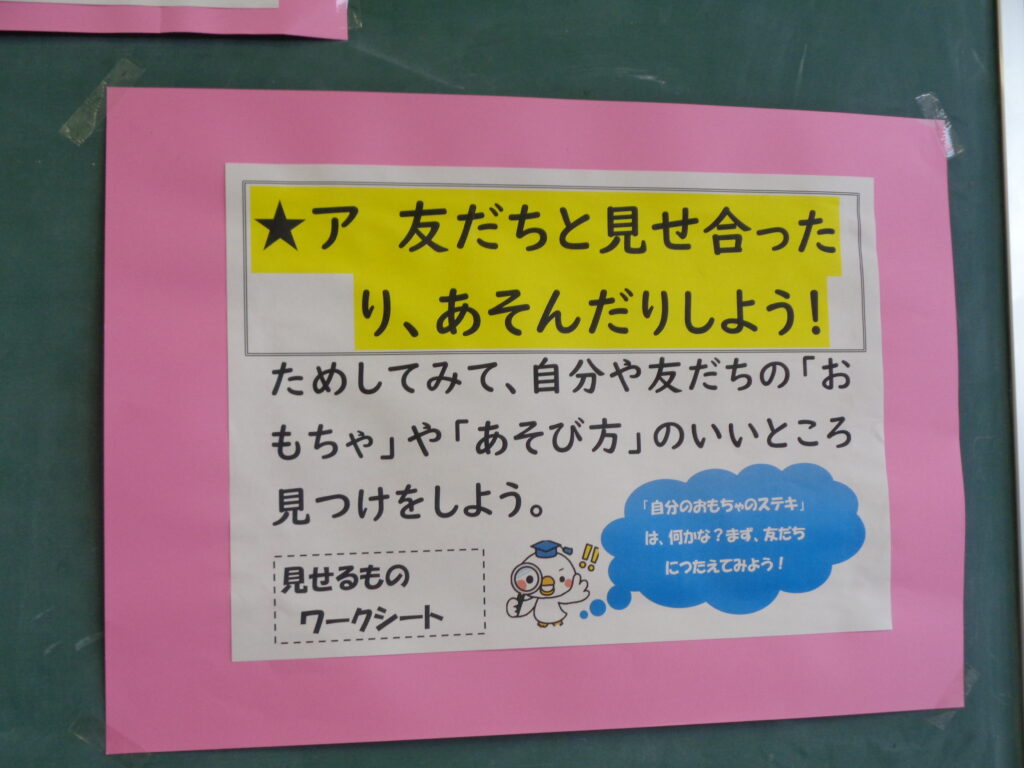 ★ア 友だちと見せ合った
り、あそんだりしよう!
ためしてみて、自分や友だちの「お
もちゃ」や「あそび方」のいいところ
見つけをしよう。
「自分のおもちゃのステキ」
は、何かな?まず、友だち
につたえてみよう!
!!
見せるもの
ワークシート